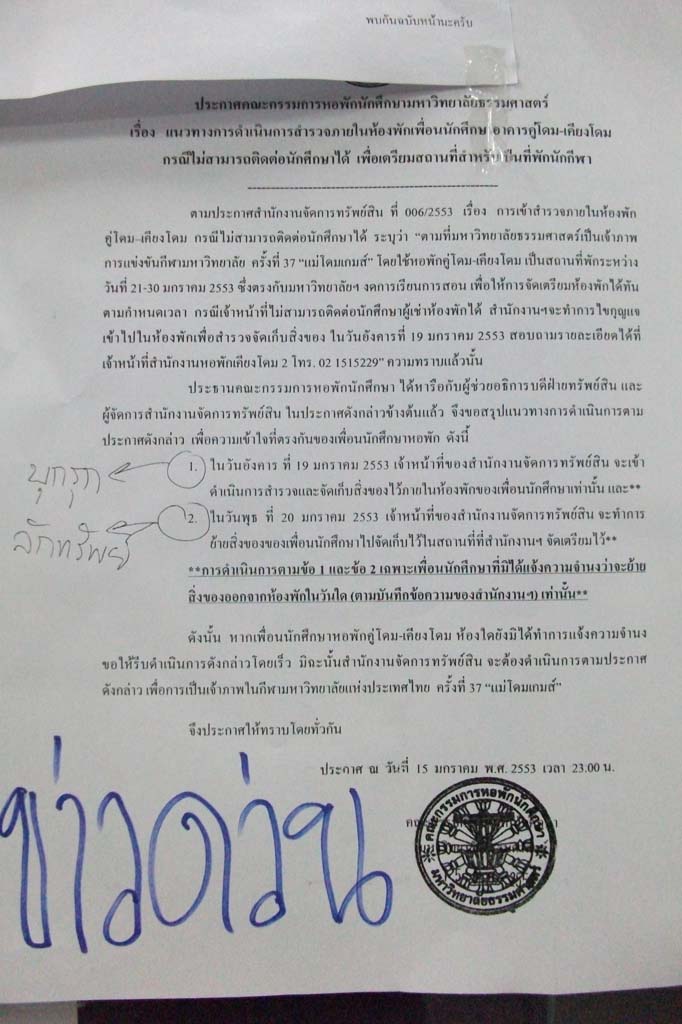 พบกันฉบับหน้านะครับ
ประกาศคณะกรรมการหอพักนักศึกษามหาวิทยาลัยธรรมศาสตร์
เรื่อง แนวทางการดำเนินการสำรวจภายในห้องพักเพื่อนนักศึกษา อาคารคู่โดม-เคียงโดม
กรณีไม่สามารถติดต่อนักศึกษาได้ เพื่อเตรียมสถานที่สำหรับเป็นที่พักนักกีฬา
ตามประกาศสำนักงานจัดการทรัพย์สิน ที่ 006/2553 เรื่อง การเข้าสำรวจภายในห้องพัก
คู่โดม–เคียงโดม กรณีไม่สามารถติดต่อนักศึกษาได้ ระบุว่า “ตามที่มหาวิทยาลัยธรรมศาสตร์เป็นเจ้าภาพ
การแข่งขันกีฬามหาวิทยาลัย ครั้งที่ 37 “แม่โดมเกมส์” โดยใช้หอพักคู่โดม-เคียงโดม เป็นสถานที่พักระหว่าง
วันที่ 21-30 มกราคม 2553 ซึ่งตรงกับมหาวิทยาลัยฯ งดการเรียนการสอน เพื่อให้การจัดเตรียมห้องพักได้ทัน
ตามกำหนดเวลา กรณีเจ้าหน้าที่ไม่สามารถติดต่อนักศึกษาผู้เช่าห้องพักได้ สำนักงานฯจะทำการไขกุญแจ
เข้าไปในห้องพักเพื่อสำรวจจัดเก็บสิ่งของ ในวันอังคารที่ 19 มกราคม 2553 สอบถามรายละเอียดได้ที่
เจ้าหน้าที่สำนักงานหอพักเคียงโดม 2 โทร. 02 1515229” ความทราบแล้วนั้น
ประธานคณะกรรมการหอพักนักศึกษา ได้หารือกับผู้ช่วยอธิการบดีฝ่ายทรัพย์สิน และ
ผู้จัดการสำนักงานจัดการทรัพย์สิน ในประกาศดังกล่าวข้างต้นแล้ว จึงขอสรุปแนวทางการดำเนินการตาม
ประกาศดังกล่าว เพื่อความเข้าใจที่ตรงกันของเพื่อนนักศึกษาหอพัก ดังนี้
บุกรุก
1. ในวันอังคาร ที่ 19 มกราคม 2553 เจ้าหน้าที่ของสำนักงานจัดการทรัพย์สิน จะเข้า
ดำเนินการสำรวจและจัดเก็บสิ่งของไว้ภายในห้องพักของเพื่อนนักศึกษาเท่านั้น และ**
ลักทรัพย์
2. ในวันพุธ ที่ 20 มกราคม 2553 เจ้าหน้าที่ของสำนักงานจัดการทรัพย์สิน จะทำการ
ย้ายสิ่งของของเพื่อนนักศึกษาไปจัดเก็บไว้ในสถานที่ที่สำนักงานฯ จัดเตรียมไว้**
**การดำเนินการตามข้อ 1 และข้อ 2 เฉพาะเพื่อนนักศึกษาที่มิได้แจ้งความจำนงว่าจะย้าย
สิ่งของออกจากห้องพักในวันใด (ตามบันทึกข้อความของสำนักงานฯ) เท่านั้น**
ดังนั้น หากเพื่อนนักศึกษาหอพักคู่โดม-เคียงโดม ห้องใดยังมิได้ทำการแจ้งความจำนง
ขอให้รีบดำเนินการดังกล่าวโดยเร็ว มิฉะนั้นสำนักงานจัดการทรัพย์สิน จะต้องดำเนินการตามประกาศ
ดังกล่าว เพื่อการเป็นเจ้าภาพในกีฬามหาวิทยาลัยแห่งประเทศไทย ครั้งที่ 37 “แม่โดมเกมส์”
จึงประกาศให้ทราบโดยทั่วกัน
ประกาศ ณ วันที่ 15 มกราคม พ.ศ. 2553 เวลา 23.00 น.
คณะกรรมการหอพักนักศึกษา
มหาวิทยาลัยธรรมศาสตร์
ข่าวด่วน